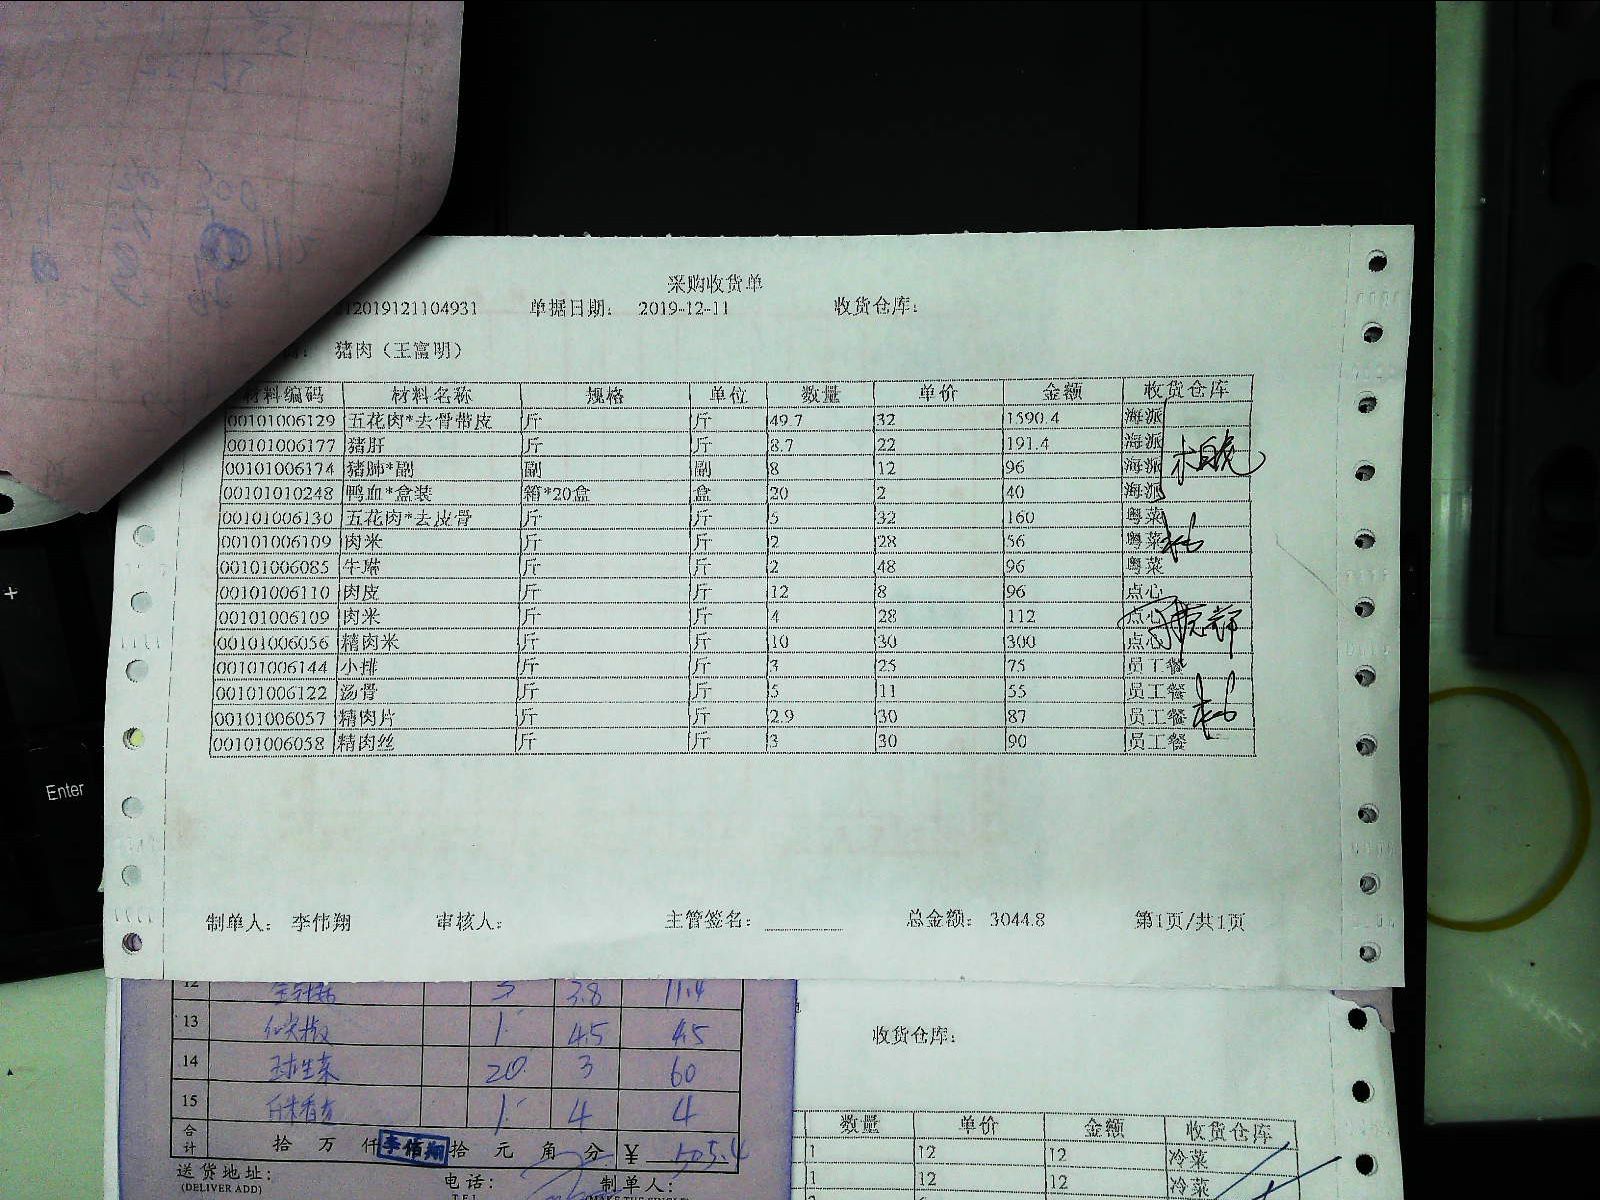 采购收货单
12019121104931 单据日期: 2019-12-11 收货仓库:
猪肉(王富明)
材料编码 材料名称 规格 单位 数量 单价 金额 收货仓库
00101006129 五花肉*去骨带皮 斤 斤 49.7 32 1590.4 海派
00101006177 猪肝 斤 斤 8.7 22 191.4 海派
00101006174 猪肺*副 副 副 8 12 96 海派
00101010248 鸭血*盒装 箱*20盒 盒 20 2 40 海派
00101006130 五花肉*去皮骨 斤 斤 5 32 160 粤菜
00101006109 肉米 斤 斤 2 28 56 粤菜
00101006085 牛𦟌 斤 斤 2 48 96 粤菜
00101006110 肉皮 斤 斤 12 8 96 点心
00101006109 肉米 斤 斤 4 28 112 点心
00101006056 精肉米 斤 斤 10 30 300 点心
00101006144 小排 斤 斤 3 25 75 员工餐
00101006122 汤骨 斤 斤 5 11 55 员工餐
00101006057 精肉片 斤 斤 2.9 30 87 员工餐
00101006058 精肉丝 斤 斤 3 30 90 员工餐
制单人: 李伟翔 审核人: 主管签名: 总金额: 3044.8 第1页/共1页
Enter
+
12 3 3.8 11.4
13 1 4.5 4.5
14 球生菜 20 3 60
15 1 4 4
合计 拾 万 仟 李伟翔 拾 元 角 分 ¥ 505.4
送货地址: 电话: 制单人:
(DELIVER ADD) TEL
收货仓库:
数量 单价 金额 收货仓库
1 12 12 冷菜
1 12 12 冷菜